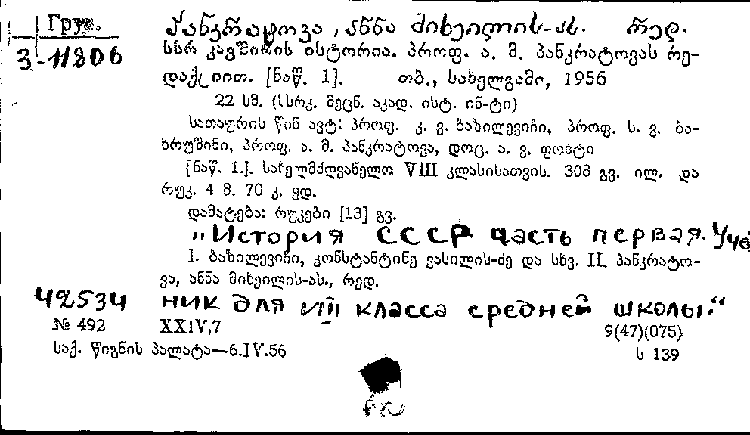 Груз.
3-11806
პანკრატოვა, ანნა მიხეილის-ას. რედ.
სსრ კავშირის ისტორია. პროფ. ა. მ. პანკრატოვას რე-
დაქციით. [ნაწ. 1]. თბ., სახელგამი, 1956
22 სმ. (სსრკ. მეცნ. აკად. ისტ. ინ-ტი)
სათაურის წინ ავტ: პროფ. კ. ვ. ბაზილევიჩი, პროფ. ს. ვ. ბა-
ხრუშინი, პროფ. ა. მ. პანკრატოვა, დოც. ა. ვ. ფოხტი
[ნაწ. 1.]. სახელმძღვანელო VIII კლასისათვის. 308 გვ. ილ. და
რუკ. 4 მ. 70 კ. ყდ.
დამატება: რუკები [13] გვ.
„История СССР часть первая. Учеб
I. ბაზილევიჩი, კონსტანტინე ვასილის-ძე და სხვ. II. პანკრატო-
ვა, ანნა მიხეილის-ას., რედ.
42534 ник для VIII класса средней школы."
№ 492 XXIV,7 9(47)(075)
საქ. წიგნის პალატა—6.IV.56 ს 139